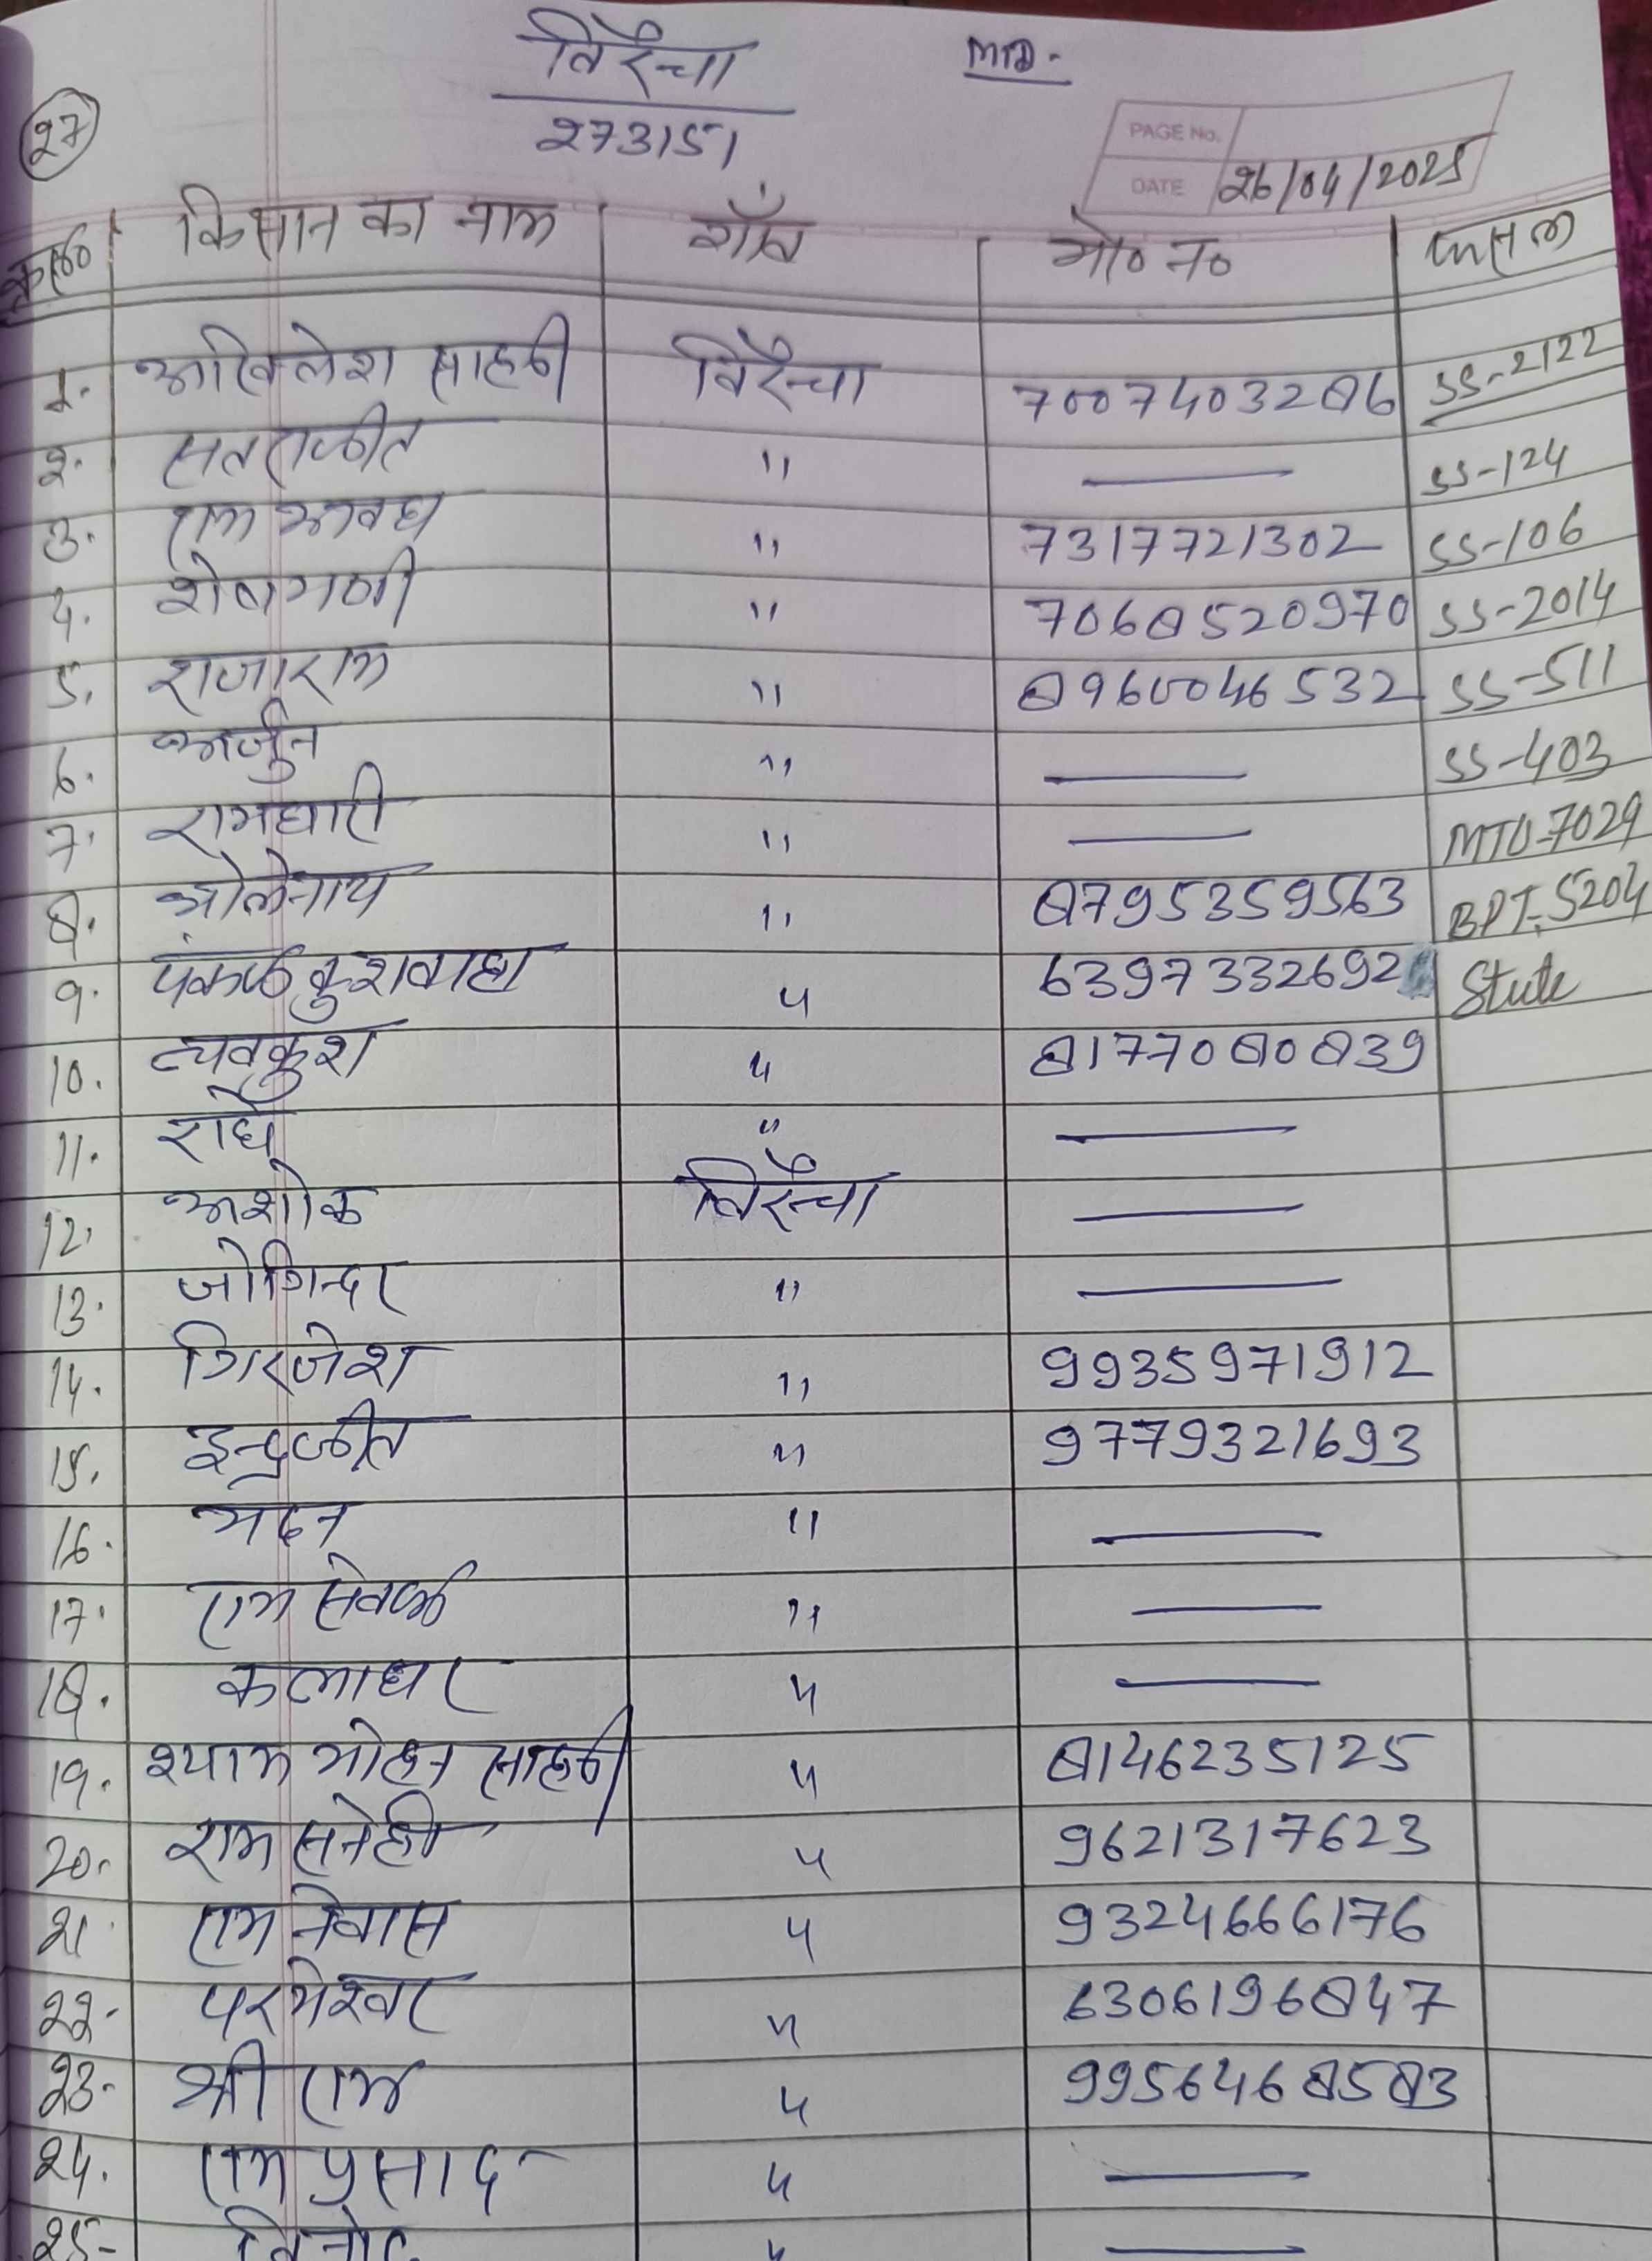 विरैचा MTD.
27 273151
PAGE No.
DATE 26/04/2025
क्र०सं० किसान का नाम गाँव मो० न० फसल
1. अखिलेश साहनी विरैचा 7007403286 SS-2122
2. सतराजीत " — SS-124
3. राम अवध " 7317721302 SS-106
4. शेषमणी " 7068520970 SS-2014
5. राजाराम " 8960046532 SS-511
6. अर्जुन " — SS-403
7. रामधारी " — MTU-7029
8. भोलेनाथ " 8795359563 BPT-5204
9. पंकज कुशवाहा " 6397332692
10. लवकुश " 8177080839
11. राधे " —
12. अशोक विरैचा —
13. जोगिन्दर " —
14. गिरजेश " 9935971912
15. इन्द्रजीत " 9779321693
16. मदन " —
17. राम सेवक " —
18. कलाधर " —
19. श्याम मोहन साहनी " 8146235125
20. राम सनेही " 9621317623
21. राम नेवास " 9324666176
22. परमेश्वर " 6306196847
23. श्री राम " 9956468583
24. राम प्रसाद " —
25- विनोद " —